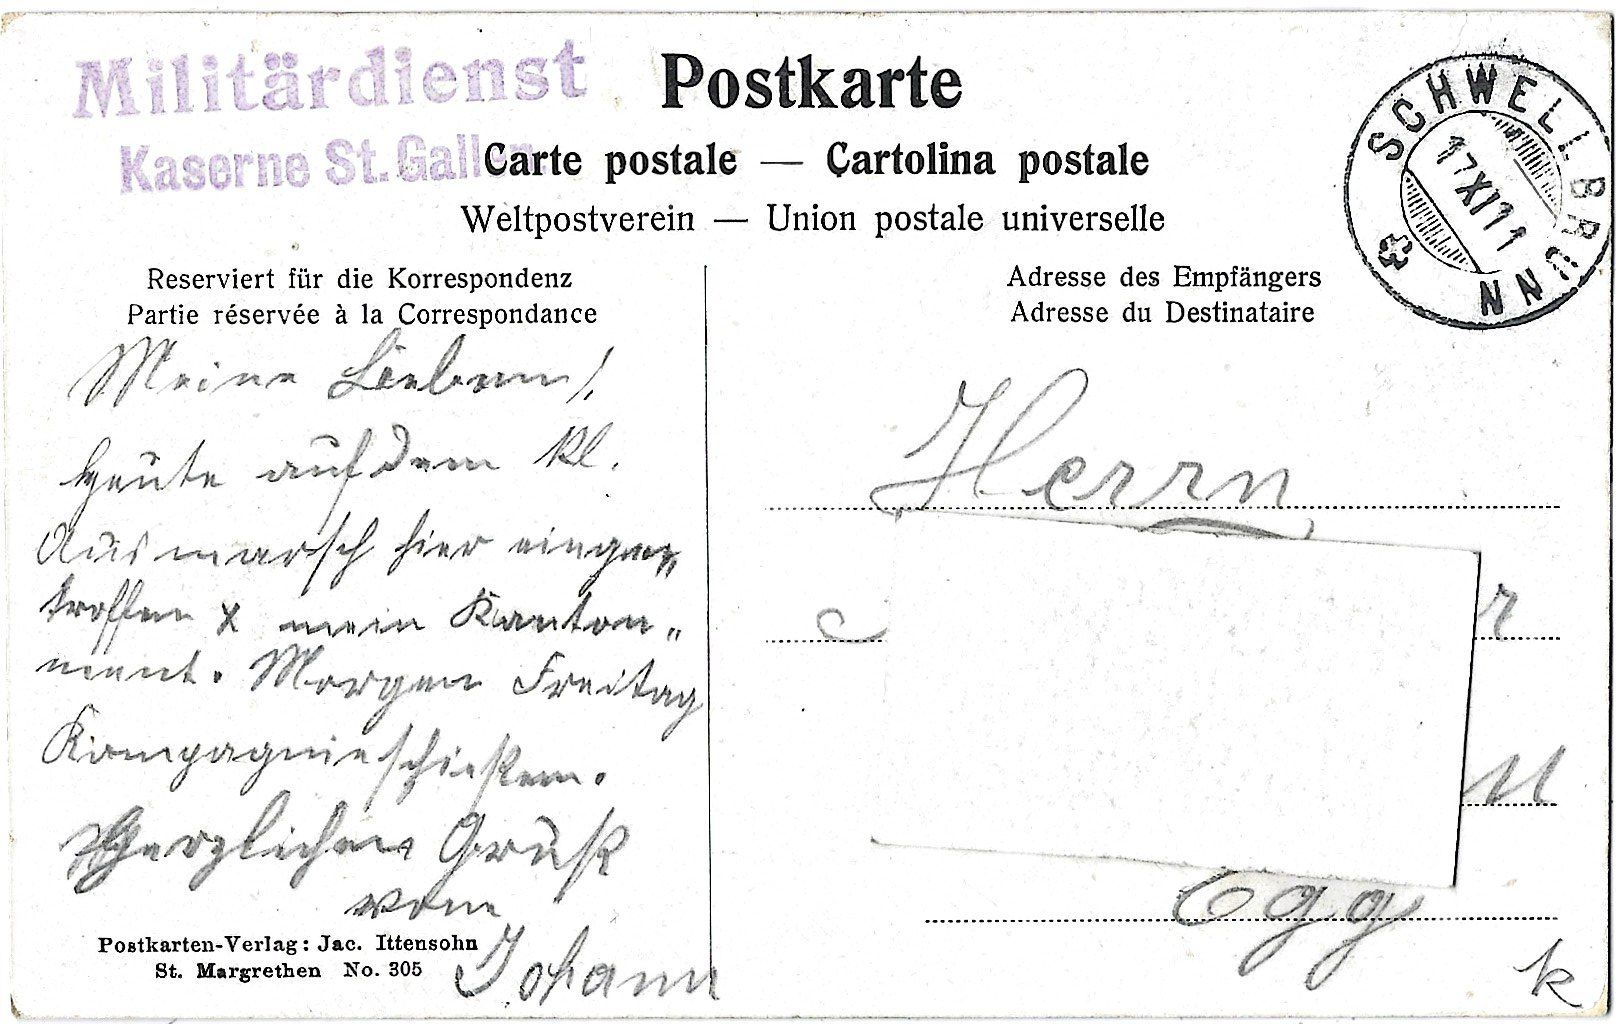 Militärdienst
Kaserne St. Gallen
Postkarte
Carte postale — Cartolina postale
Weltpostverein — Union postale universelle
SCHWELLBRUNN
17 XI 11
Reserviert für die Korrespondenz
Partie réservée à la Correspondance
Adresse des Empfängers
Adresse du Destinataire
Meine Lieben!
Heute auf dem kl.
Ausmarsch hier einge„
troffen x mein Kanton„
ment. Morgen Freitag
Kompagnieschießen.
Herzlichen Gruß
von
Johann
Postkarten-Verlag: Jac. Ittensohn
St. Margrethen No. 305
Herrn
r
Egg
k